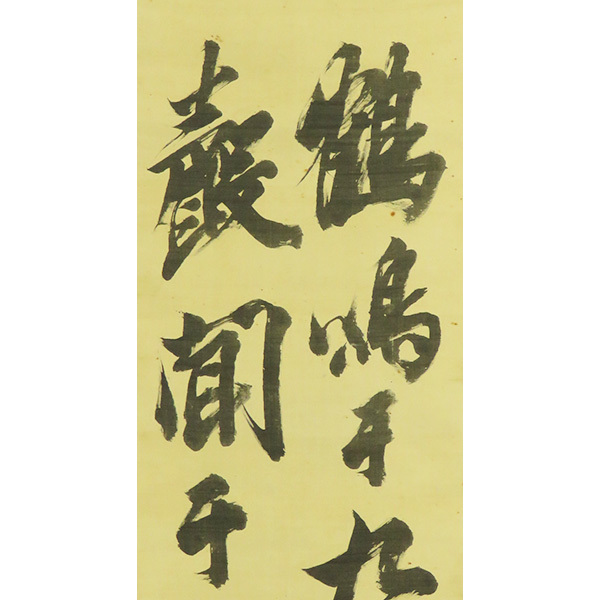 鶴鳴于九
聲聞于